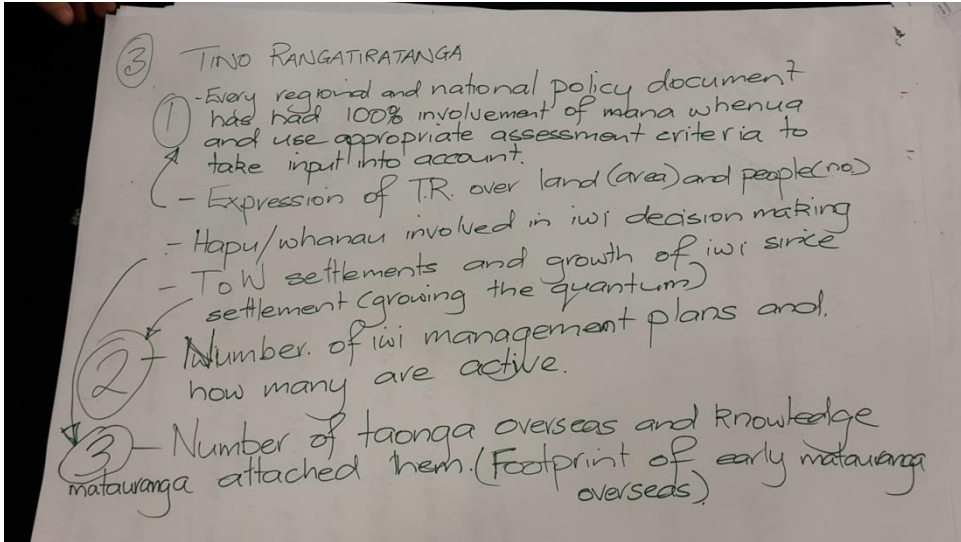 ③ TINO RANGATIRATANGA
① -Every regional and national policy document
has had 100% involvement of mana whenua
and use appropriate assessment criteria to
take input into account.
- Expression of T.R. over land (area) and people (no.)
- Hapu/whanau involved in iwi decision making
- ToW settlements and growth of iwi since
settlement (growing the quantum)
② - Number. of iwi management plans and.
how many are active.
③ - Number of taonga overseas and knowledge
matauranga attached them. (Footprint of early matauranga
overseas)